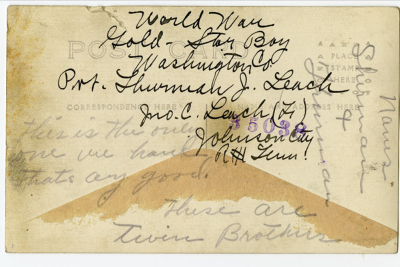 World War
Gold Star Boy
Washington Co
Pvt. Thurman J. Leach
Jno. C. Leach (F)
Johnson City
R#1 Tenn.
POST CARD
A PLACE
STAMP
HERE
CORRESPONDENCE HERE
ADDRESS HERE
35038
This is the only
one we have
thats any good.
These are
Twin Brothers
Names
Sherman
&
Thurman